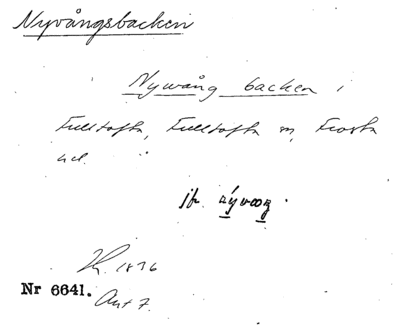 Nyvångsbacken
Nywång backen i
Fulltofta, Fulltofta sn, Frosta
hd.
jfr
1896
Nr 6641. Ant 7.